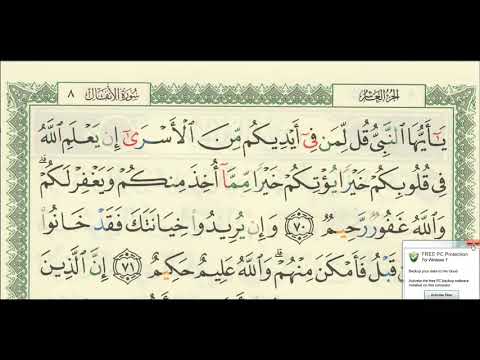 سُورَةُ الأَنفَالِ ٨
الجُزءُ العَاشِرُ
يَٰٓأَيُّهَا ٱلنَّبِىُّ قُل لِّمَن فِىٓ أَيْدِيكُم مِّنَ ٱلْأَسْرَىٰٓ إِن يَعْلَمِ ٱللَّهُ
فِى قُلُوبِكُمْ خَيْرًا يُؤْتِكُمْ خَيْرًا مِّمَّآ أُخِذَ مِنكُمْ وَيَغْفِرْ لَكُمْ ۗ
وَٱللَّهُ غَفُورٌ رَّحِيمٌ ٧٠ وَإِن يُرِيدُوا۟ خِيَانَتَكَ فَقَدْ خَانُوا۟
قَبْلُ فَأَمْكَنَ مِنْهُمْ ۗ وَٱللَّهُ عَلِيمٌ حَكِيمٌ ٧١ إِنَّ ٱلَّذِينَ
FREE PC Protection
For Windows 7
Backup your data to the cloud
Activate the free PC backup software
installed on this computer
Activate Now